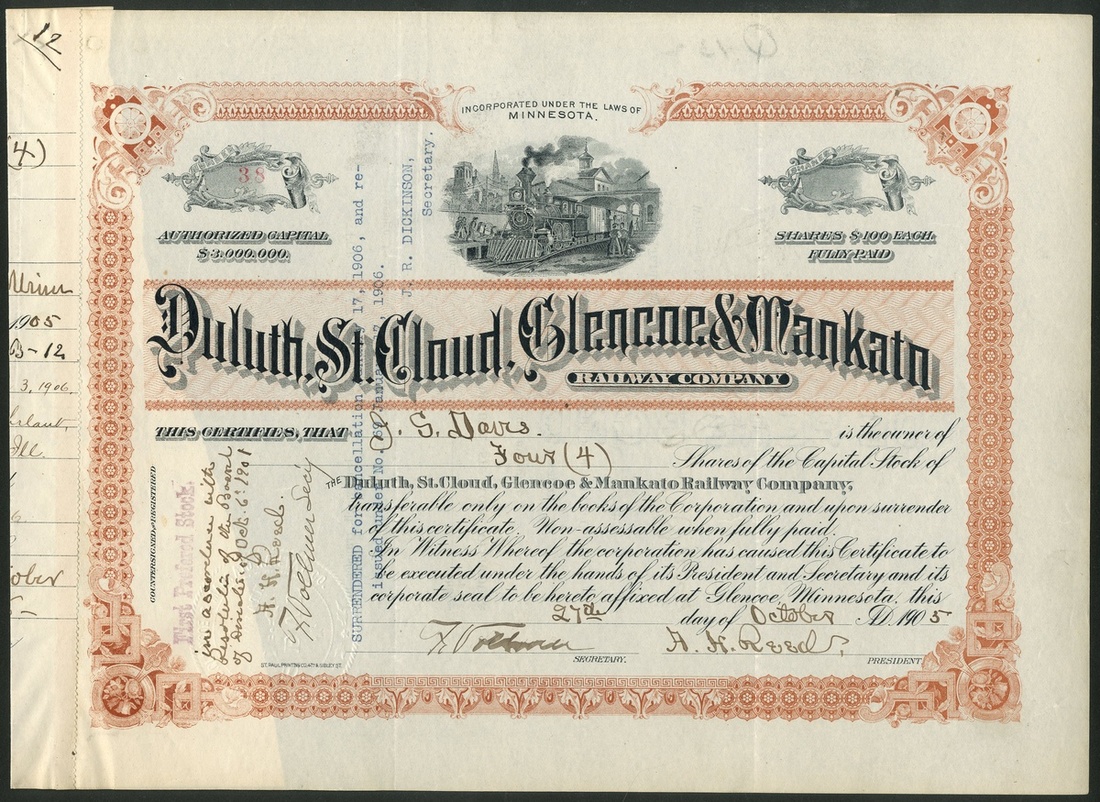 12
(4)
1905
3-12
3, 1906.
Ill.
INCORPORATED UNDER THE LAWS OF
MINNESOTA.
NUMBER
38
SHARES
AUTHORIZED CAPITAL
$3.000.000.
SHARES $100 EACH.
FULLY PAID
Duluth, St. Cloud, Glencoe & Mankato
RAILWAY COMPANY
THIS CERTIFIES, THAT J. S. Davis. is the owner of
Four (4) Shares of the Capital Stock of
THE Duluth, St. Cloud, Glencoe & Mankato Railway Company,
transferable only on the books of the Corporation and upon surrender
of this certificate. Non-assessable when fully paid.
In Witness Whereof the corporation has caused this Certificate to
be executed under the hands of its President and Secretary and its
corporate seal to be hereto affixed at Glencoe, Minnesota, this
27th day of October A.D. 1905
F. Vollmer SECRETARY.
A. H. Reed, PRESIDENT
ST. PAUL PRINTING CO. 4TH & SIBLEY ST.
COUNTERSIGNED AND REGISTERED
First Preferred Stock.
in accordance with
Resolution of the Board
of Directors of Oct. 6th 1901
A. H. Reed. P
F Vollmer Secy
SURRENDERED for cancellation 17, 1906, and re-
issued under No. January 17, 1906.
J. R. DICKINSON,
Secretary.